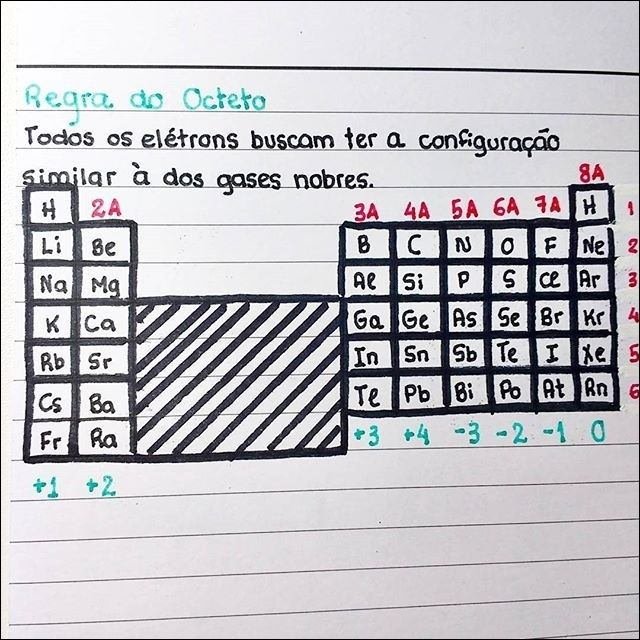 Regra do Octeto
Todos os elétrons buscam ter a configuração
similar à dos gases nobres.
8A
H 2A 3A 4A 5A 6A 7A H 1
Li Be B C N O F Ne 2
Na Mg Al Si P S Cl Ar 3
K Ca Ga Ge As Se Br Kr 4
Rb Sr In Sn Sb Te I Xe 5
Cs Ba Te Pb Bi Po At Rn 6
Fr Ra +3 +4 -3 -2 -1 0
+1 +2